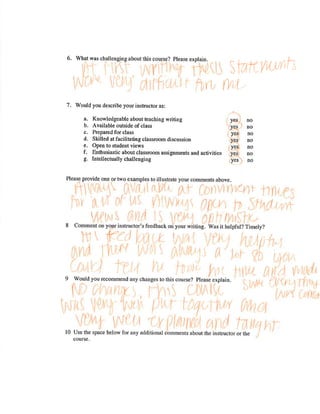 6. What was challenging about this course? Please explain.
At first writing thesis statements
were very difficult for me.
7. Would you describe your instructor as:
a. Knowledgeable about teaching writing yes no
b. Available outside of class yes no
c. Prepared for class yes no
d. Skilled at facilitating classroom discussion yes no
e. Open to student views yes no
f. Enthusiastic about classroom assignments and activities yes no
g. Intellectually challenging yes no
Please provide one or two examples to illustrate your comments above.
Always available at convinient times
for all of us. Always open to student
views and is very optimistic.
8 Comment on your instructor's feedback on your writing. Was it helpful? Timely?
feed back was very helpful
and there was always a lot so you
could tell he took his time and made
sure everything
was correct
9 Would you recommend any changes to this course? Please explain.
NO changes, this course
was very well put together and
very well explained and taught.
10 Use the space below for any additional comments about the instructor or the
course.